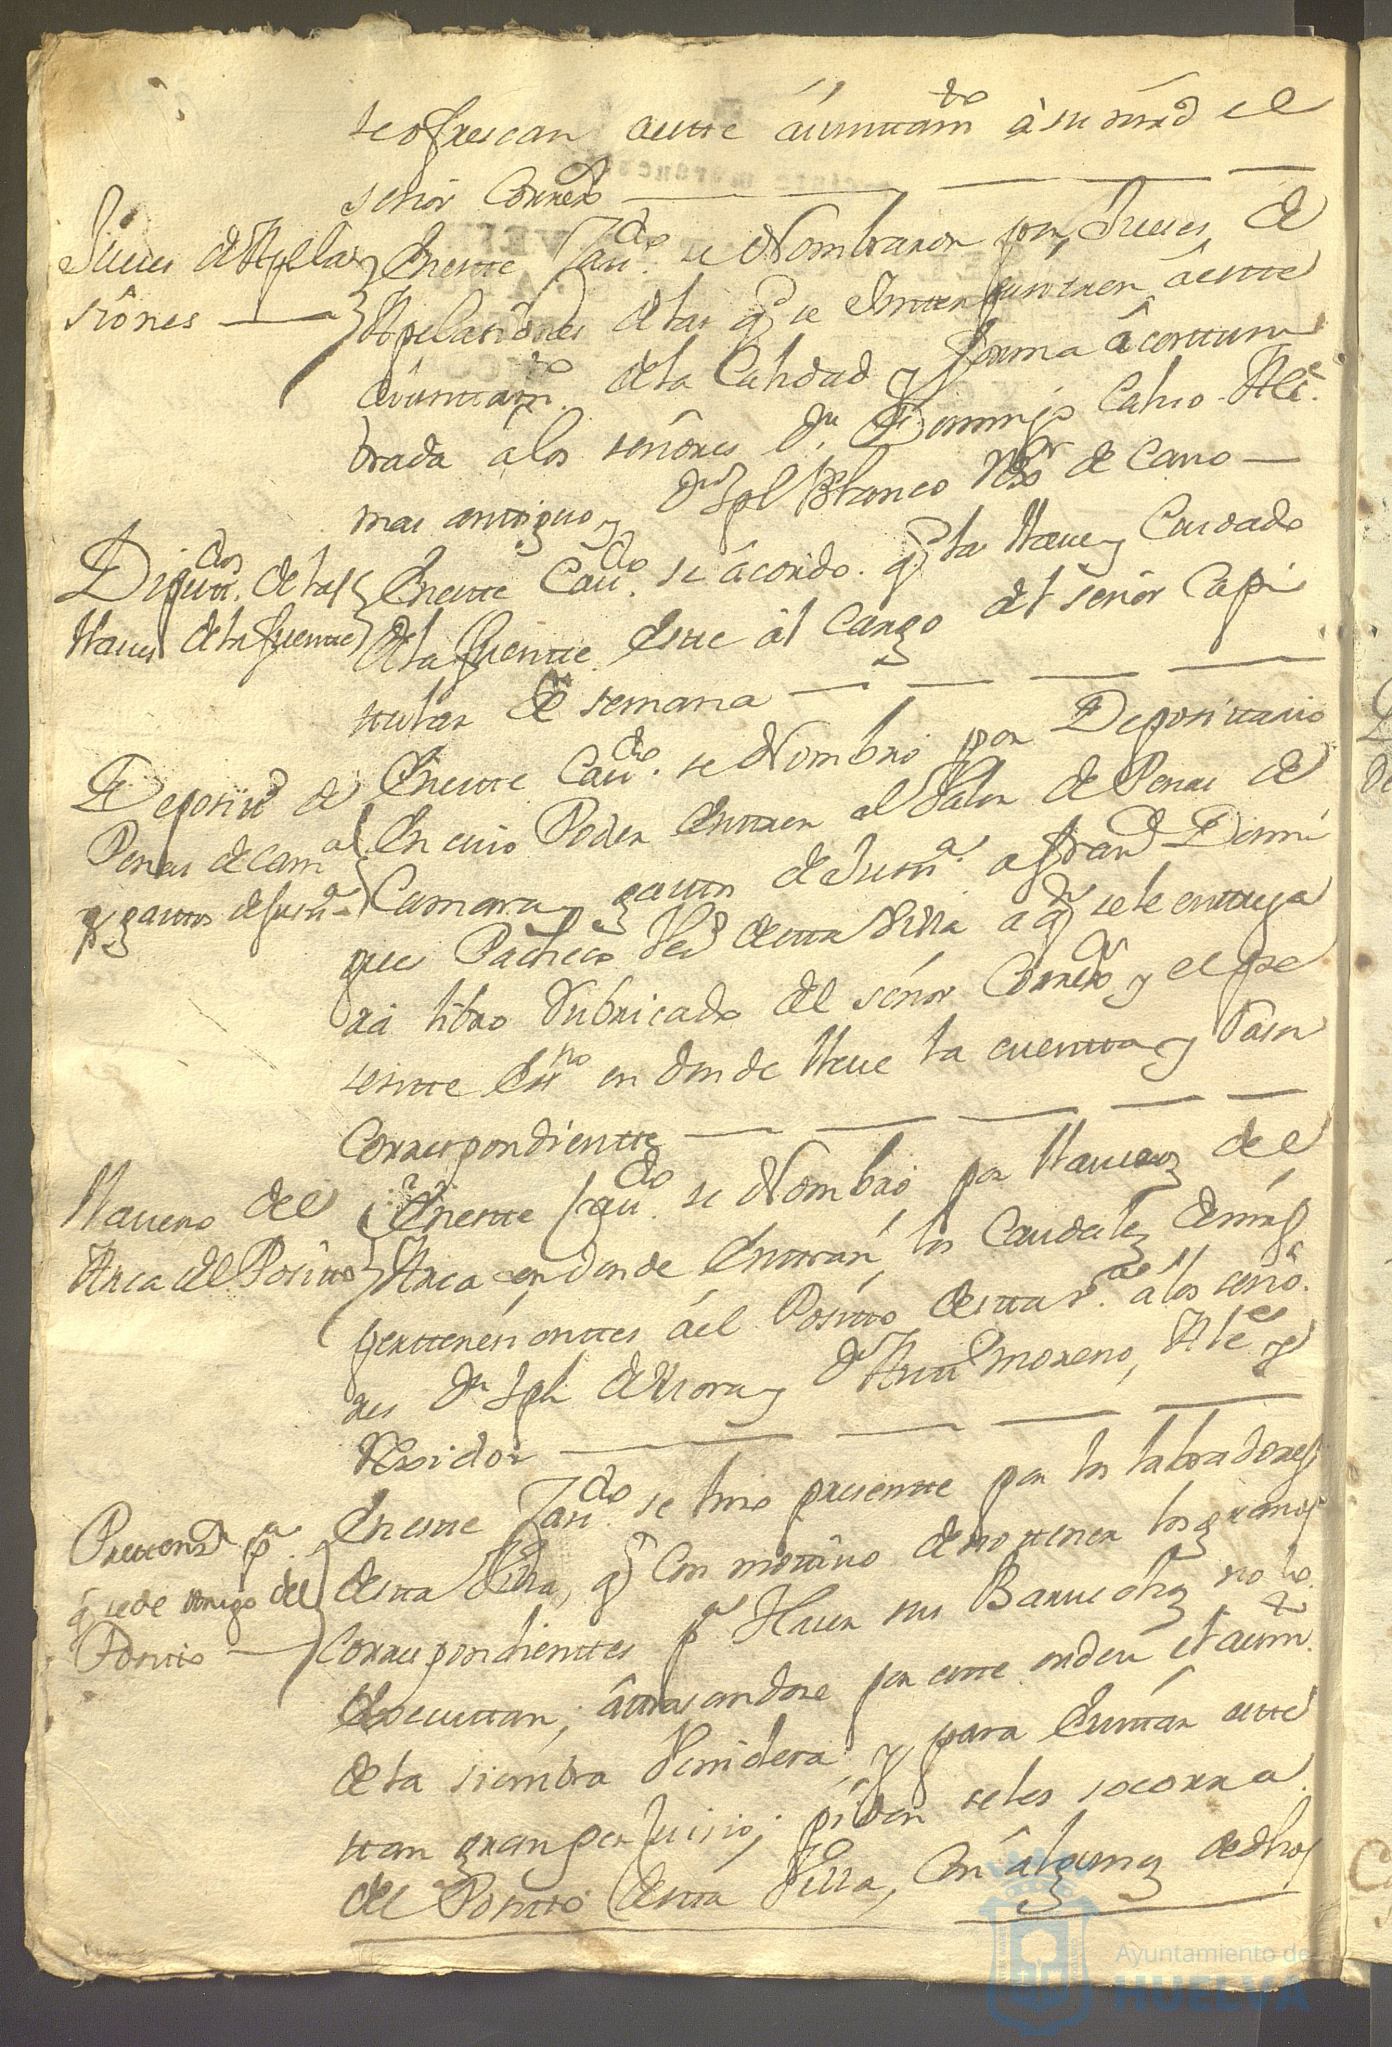 se ofrescan a este aiuntam.do à su mrd el
señor Correx.or
Jueces de Apelaciones
En este Cau.do se Nombraron por Jueces de
Apelaciones de las q.e se Interpusieren à este
aiuntam.to de la Calidad y forma âcosttum
brada a los señores D.n Domingo Calvo Alc.e
mas antiguo, y D.n Jph Blanco Rex.or de Cano
Diputt.dos de las
llaues de la fuentte
En este Cau.do se âcordo q.e la llaue y Cuidado
de la fuentte este al Cargo del señor Capi
tular de semana
Deposit.o de
Penas de Cam.a
y gastos de Just.a
En este Cau.do se Nombrò por Deposittario
En cuio Poder entren el Valor de Penas de
Camara y gastos de Justt.a a Fran.co Domin
gues Pacheco Vez.o de esta Villa a q.n se le entrega
rá libro Rubricado del señor Correx.or y el pre
sentte Ess.no en donde lleue la cuentta y Razon
Correspondientte
Llauero del
Arca del Positto
En este Cau.do se Nombrò por llaueros del
Arca en donde Entraràn los Caudales demàs
pertenesienttes àel Positto desta v.a a los seño
res D.n Jph de Mora y D.n Ant.o Moreno, Alc.e y
Rexidor
Prettens.n p.a
q.e se de trigo del
Positto
En este Cau.do se hizo presentte por los labradores
desta Villa, q.e Con mottivo de no ttener los granos
Correspondienttes p.a Hacer sus Baruechos no lo
Executtan, âttrasandose por este orden el aum.to
de la siembra Venidera, y para Euittàr este
ttan gran perJuicio, piden se les socorra
del Positto desta Villa, Con âlgunas de dhos
Ayuntamiento de
HUELVA